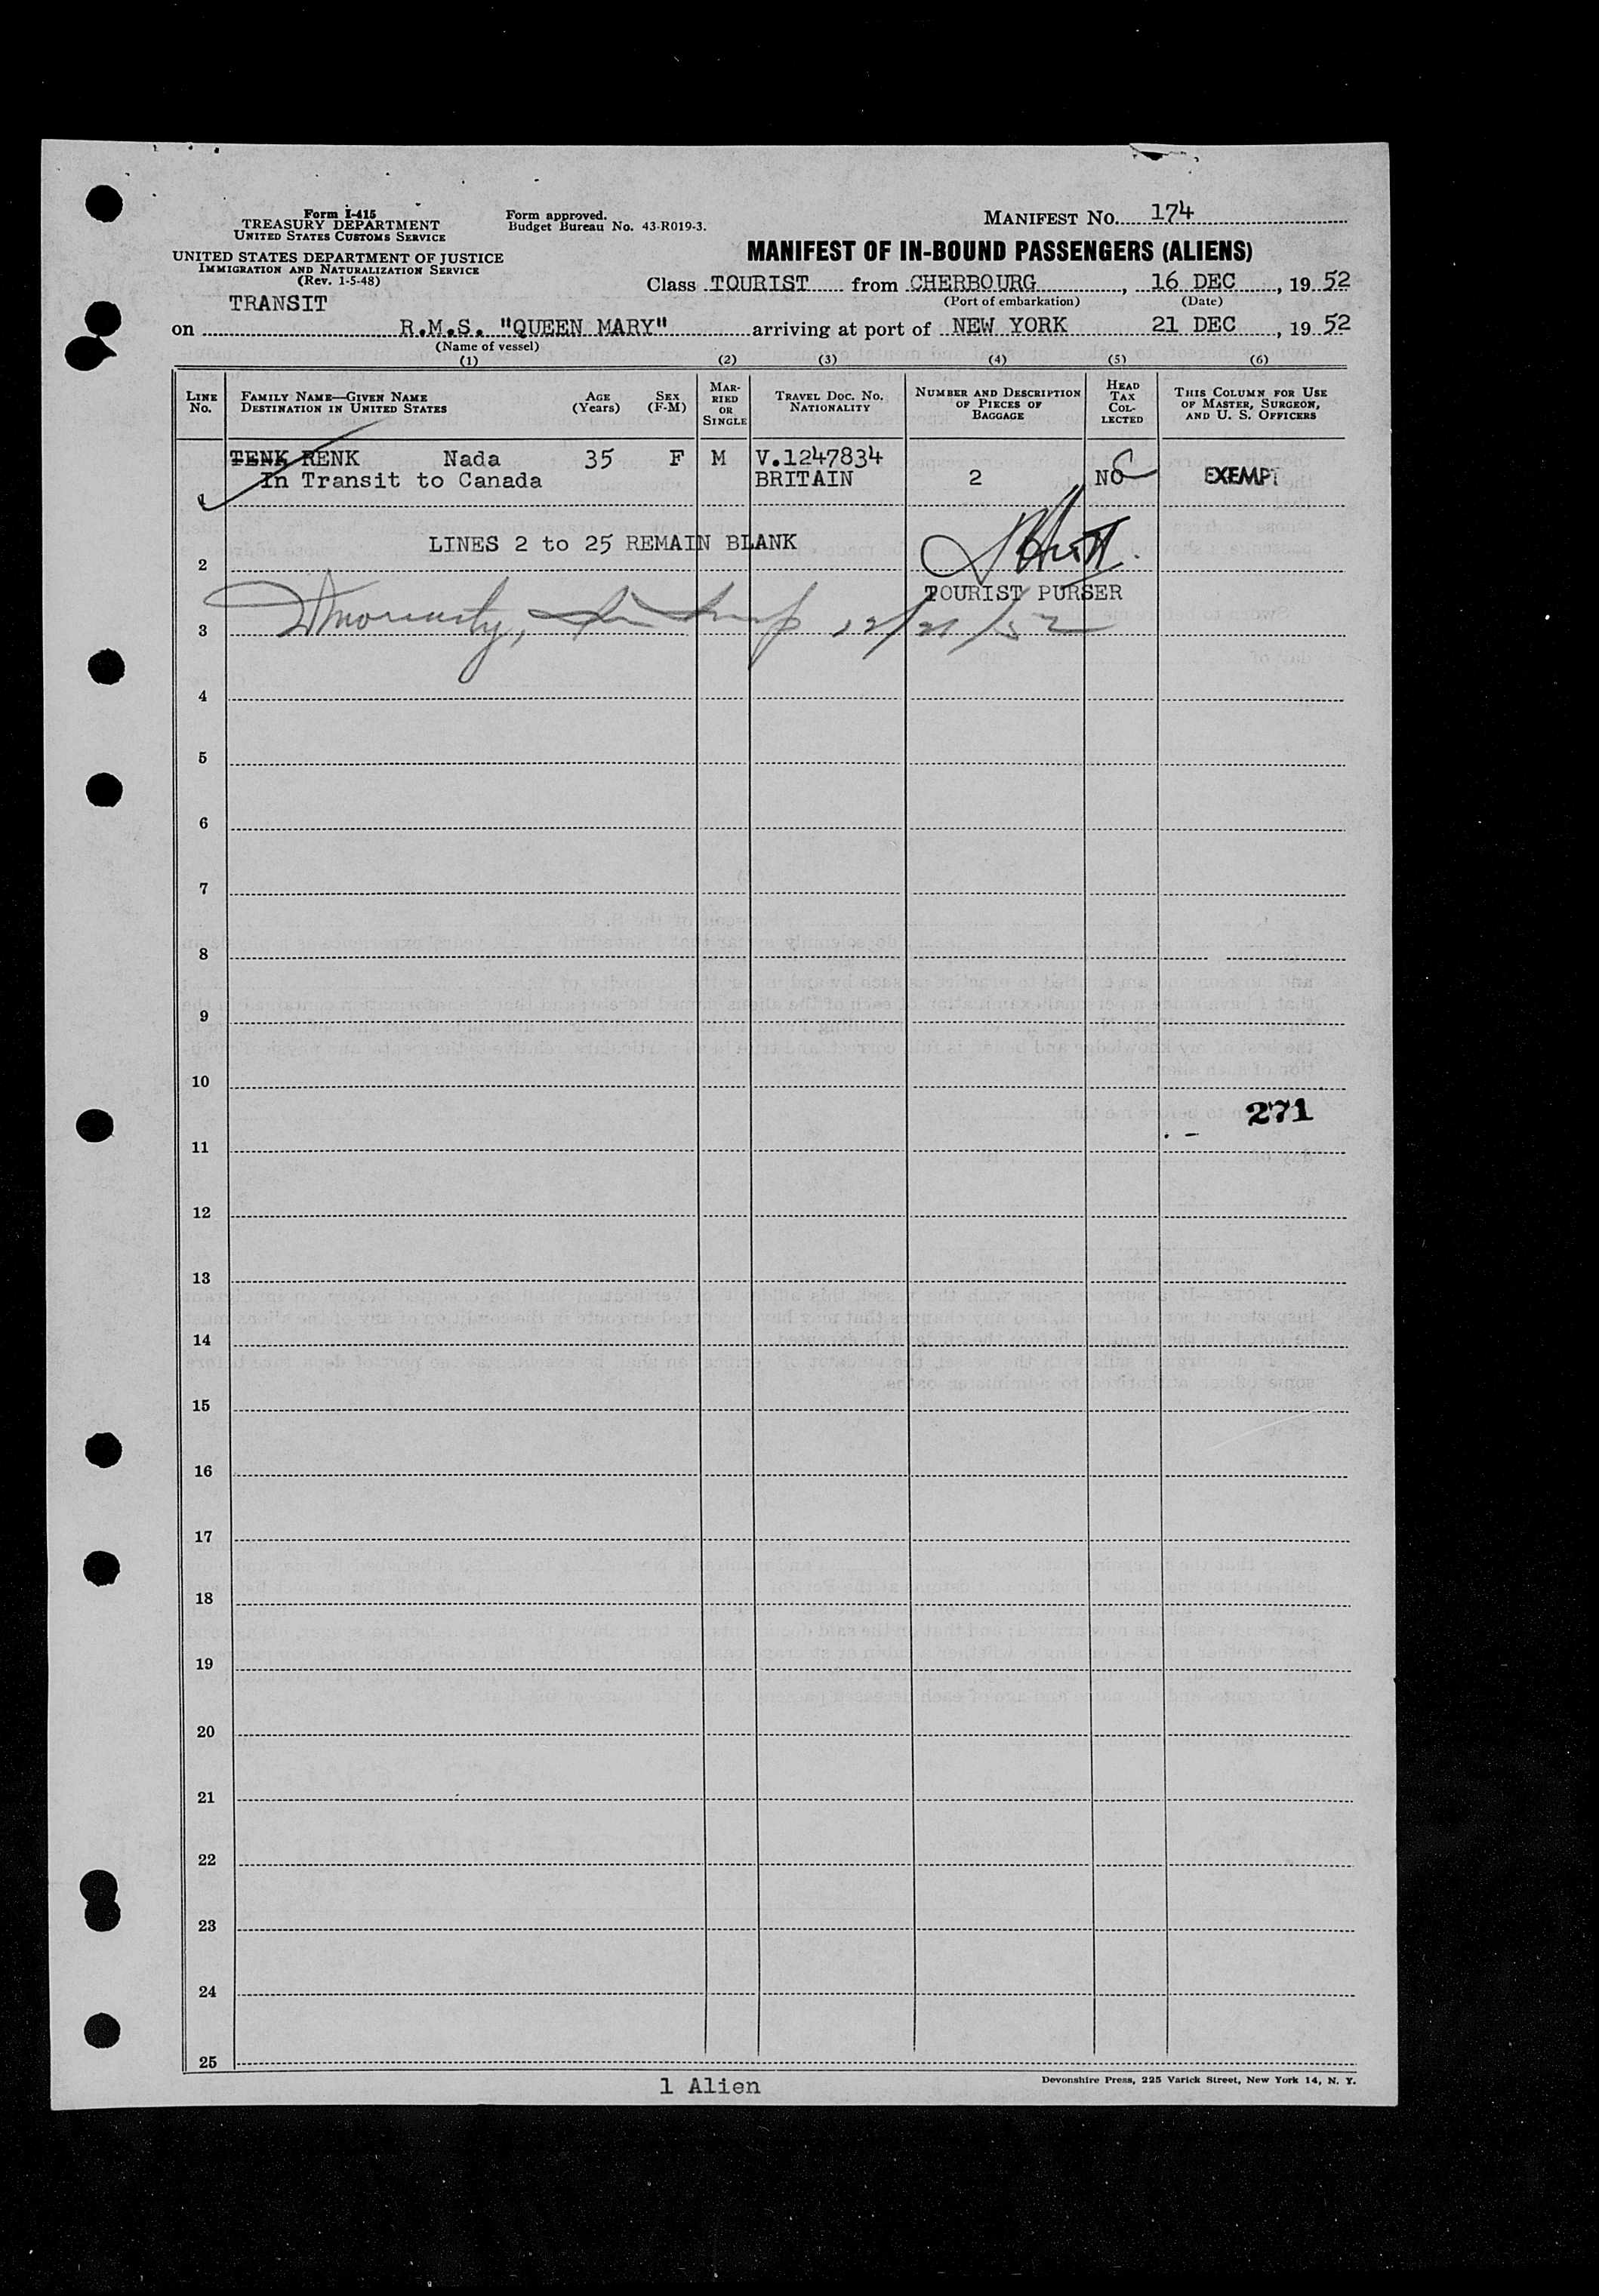 Form I-415
TREASURY DEPARTMENT
UNITED STATES CUSTOMS SERVICE
UNITED STATES DEPARTMENT OF JUSTICE
IMMIGRATION AND NATURALIZATION SERVICE
(Rev. 1-5-48)
Form approved.
Budget Bureau No. 43-R019-3.
MANIFEST NO. 174
MANIFEST OF IN-BOUND PASSENGERS (ALIENS)
Class TOURIST from CHERBOURG, 16 DEC, 19 52
(Port of embarkation) (Date)
TRANSIT
on R.M.S. "QUEEN MARY" arriving at port of NEW YORK 21 DEC, 19 52
(Name of vessel)
(1) (2) (3) (4) (5) (6)
LINE No. FAMILY NAME—GIVEN NAME DESTINATION IN UNITED STATES AGE (Years) SEX (F-M) MARRIED OR SINGLE TRAVEL DOC. NO. NATIONALITY NUMBER AND DESCRIPTION OF PIECES OF BAGGAGE HEAD TAX COLLECTED THIS COLUMN FOR USE OF MASTER, SURGEON, AND U. S. OFFICERS
TENK RENK Nada 35 F M V.1247834
In Transit to Canada BRITAIN 2 NO EXEMPT
1
LINES 2 to 25 REMAIN BLANK
2
TOURIST PURSER
3 12/21/52
4
5
6
7
8
9
10
271
11
12
13
14
15
16
17
18
19
20
21
22
23
24
25
1 Alien
Devonshire Press, 225 Varick Street, New York 14, N. Y.